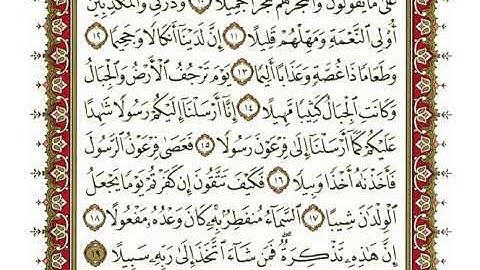 عَلَىٰ مَا يَقُولُونَ وَٱهْجُرْهُمْ هَجْرًا جَمِيلًا ١٠ وَذَرْنِى وَٱلْمُكَذِّبِينَ
أُو۟لِى ٱلنَّعْمَةِ وَمَهِّلْهُمْ قَلِيلًا ١١ إِنَّ لَدَيْنَآ أَنكَالًا وَجَحِيمًا ١٢
وَطَعَامًا ذَا غُصَّةٍ وَعَذَابًا أَلِيمًا ١٣ يَوْمَ تَرْجُفُ ٱلْأَرْضُ وَٱلْجِبَالُ
وَكَانَتِ ٱلْجِبَالُ كَثِيبًا مَّهِيلًا ١٤ إِنَّآ أَرْسَلْنَآ إِلَيْكُمْ رَسُولًا شَٰهِدًا
عَلَيْكُمْ كَمَآ أَرْسَلْنَآ إِلَىٰ فِرْعَوْنَ رَسُولًا ١٥ فَعَصَىٰ فِرْعَوْنُ ٱلرَّسُولَ
فَأَخَذْنَٰهُ أَخْذًا وَبِيلًا ١٦ فَكَيْفَ تَتَّقُونَ إِن كَفَرْتُمْ يَوْمًا يَجْعَلُ
ٱلْوِلْدَٰنَ شِيبًا ١٧ ٱلسَّمَآءُ مُنفَطِرٌۢ بِهِۦ كَانَ وَعْدُهُۥ مَفْعُولًا ١٨
إِنَّ هَٰذِهِۦ تَذْكِرَةٌ فَمَن شَآءَ ٱتَّخَذَ إِلَىٰ رَبِّهِۦ سَبِيلًا ١٩